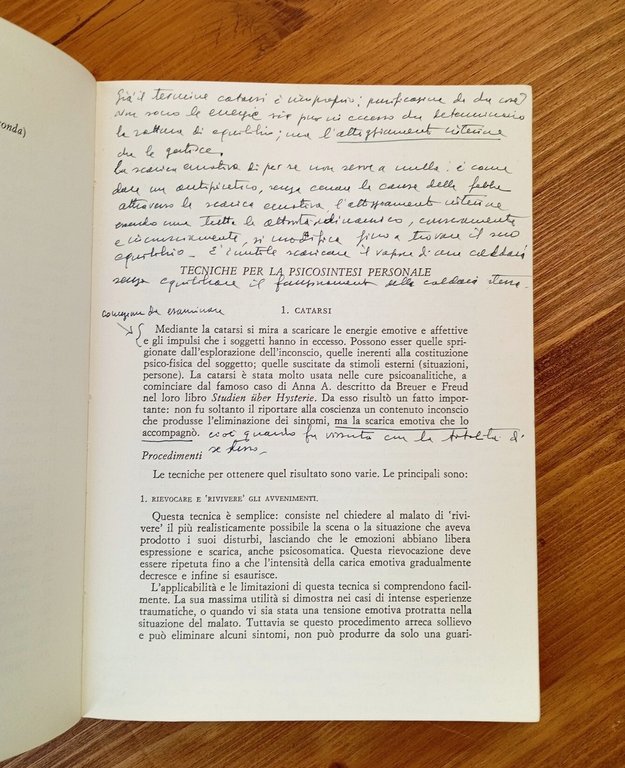 onda)
Già il termine catarsi è improprio; purificazione da che cosa?
Non sono le energie sia pur in eccesso che determinano
la rottura di equilibrio; ma l'atteggiamento interiore
che le gestisce.
La scarica emotiva di per se non serve a nulla: è come
dare un antipiretico, senza curare la causa della febbre
attraverso la scarica emotiva l'atteggiamento interiore
essendo una tutt'altro dinamico, consciamente
e inconsciamente, si modifica fino a trovare il suo
equilibrio. È inutile scaricare il vapore di una caldaia
TECNICHE PER LA PSICOSINTESI PERSONALE
senza equilibrare il funzionamento della caldaia stessa.
1. CATARSI
da esaminare
Mediante la catarsi si mira a scaricare le energie emotive e affettive
e gli impulsi che i soggetti hanno in eccesso. Possono esser quelle spri-
gionate dall'esplorazione dell'inconscio, quelle inerenti alla costituzione
psico-fisica del soggetto; quelle suscitate da stimoli esterni (situazioni,
persone). La catarsi è stata molto usata nelle cure psicoanalitiche, a
cominciare dal famoso caso di Anna A. descritto da Breuer e Freud
nel loro libro Studien über Hysterie. Da esso risultò un fatto impor-
tante: non fu soltanto il riportare alla coscienza un contenuto inconscio
che produsse l'eliminazione dei sintomi, ma la scarica emotiva che lo
accompagnò. cioè quando fu vissuta con la totalità di
se stesso.
Procedimenti
Le tecniche per ottenere quel risultato sono varie. Le principali sono:
1. RIEVOCARE E 'RIVIVERE' GLI AVVENIMENTI.
Questa tecnica è semplice: consiste nel chiedere al malato di 'rivi-
vere' il più realisticamente possibile la scena o la situazione che aveva
prodotto i suoi disturbi, lasciando che le emozioni abbiano libera
espressione e scarica, anche psicosomatica. Questa rievocazione deve
essere ripetuta fino a che l'intensità della carica emotiva gradualmente
decresce e infine si esaurisce.
L'applicabilità e le limitazioni di questa tecnica si comprendono facil-
mente. La sua massima utilità si dimostra nei casi di intense esperienze
traumatiche, o quando vi sia stata una tensione emotiva protratta nella
situazione del malato. Tuttavia se questo procedimento arreca sollievo
e può eliminare alcuni sintomi, non può produrre da solo una guari-